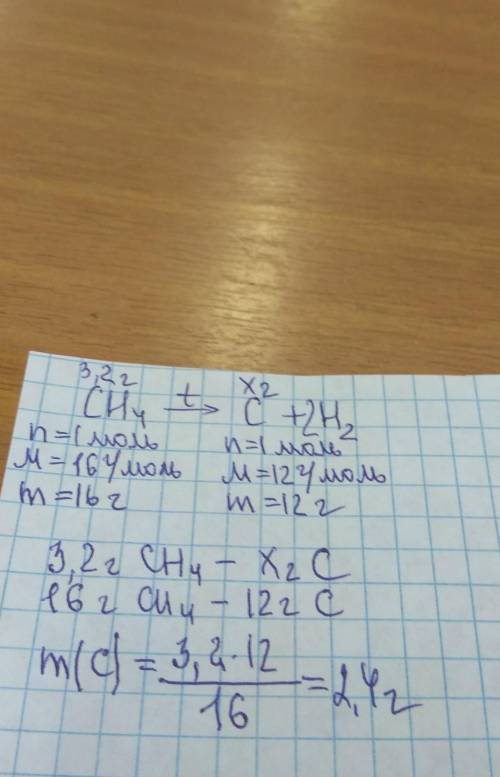 3,2г xг
CH₄ —t→ C + 2H₂
n=1 моль n=1 моль
M=16 г/моль M=12 г/моль
m=16 г m=12 г
3,2 г CH₄ – xг C
16 г CH₄ – 12 г C
m(C) = 3,2·12 / 16 = 2,4 г